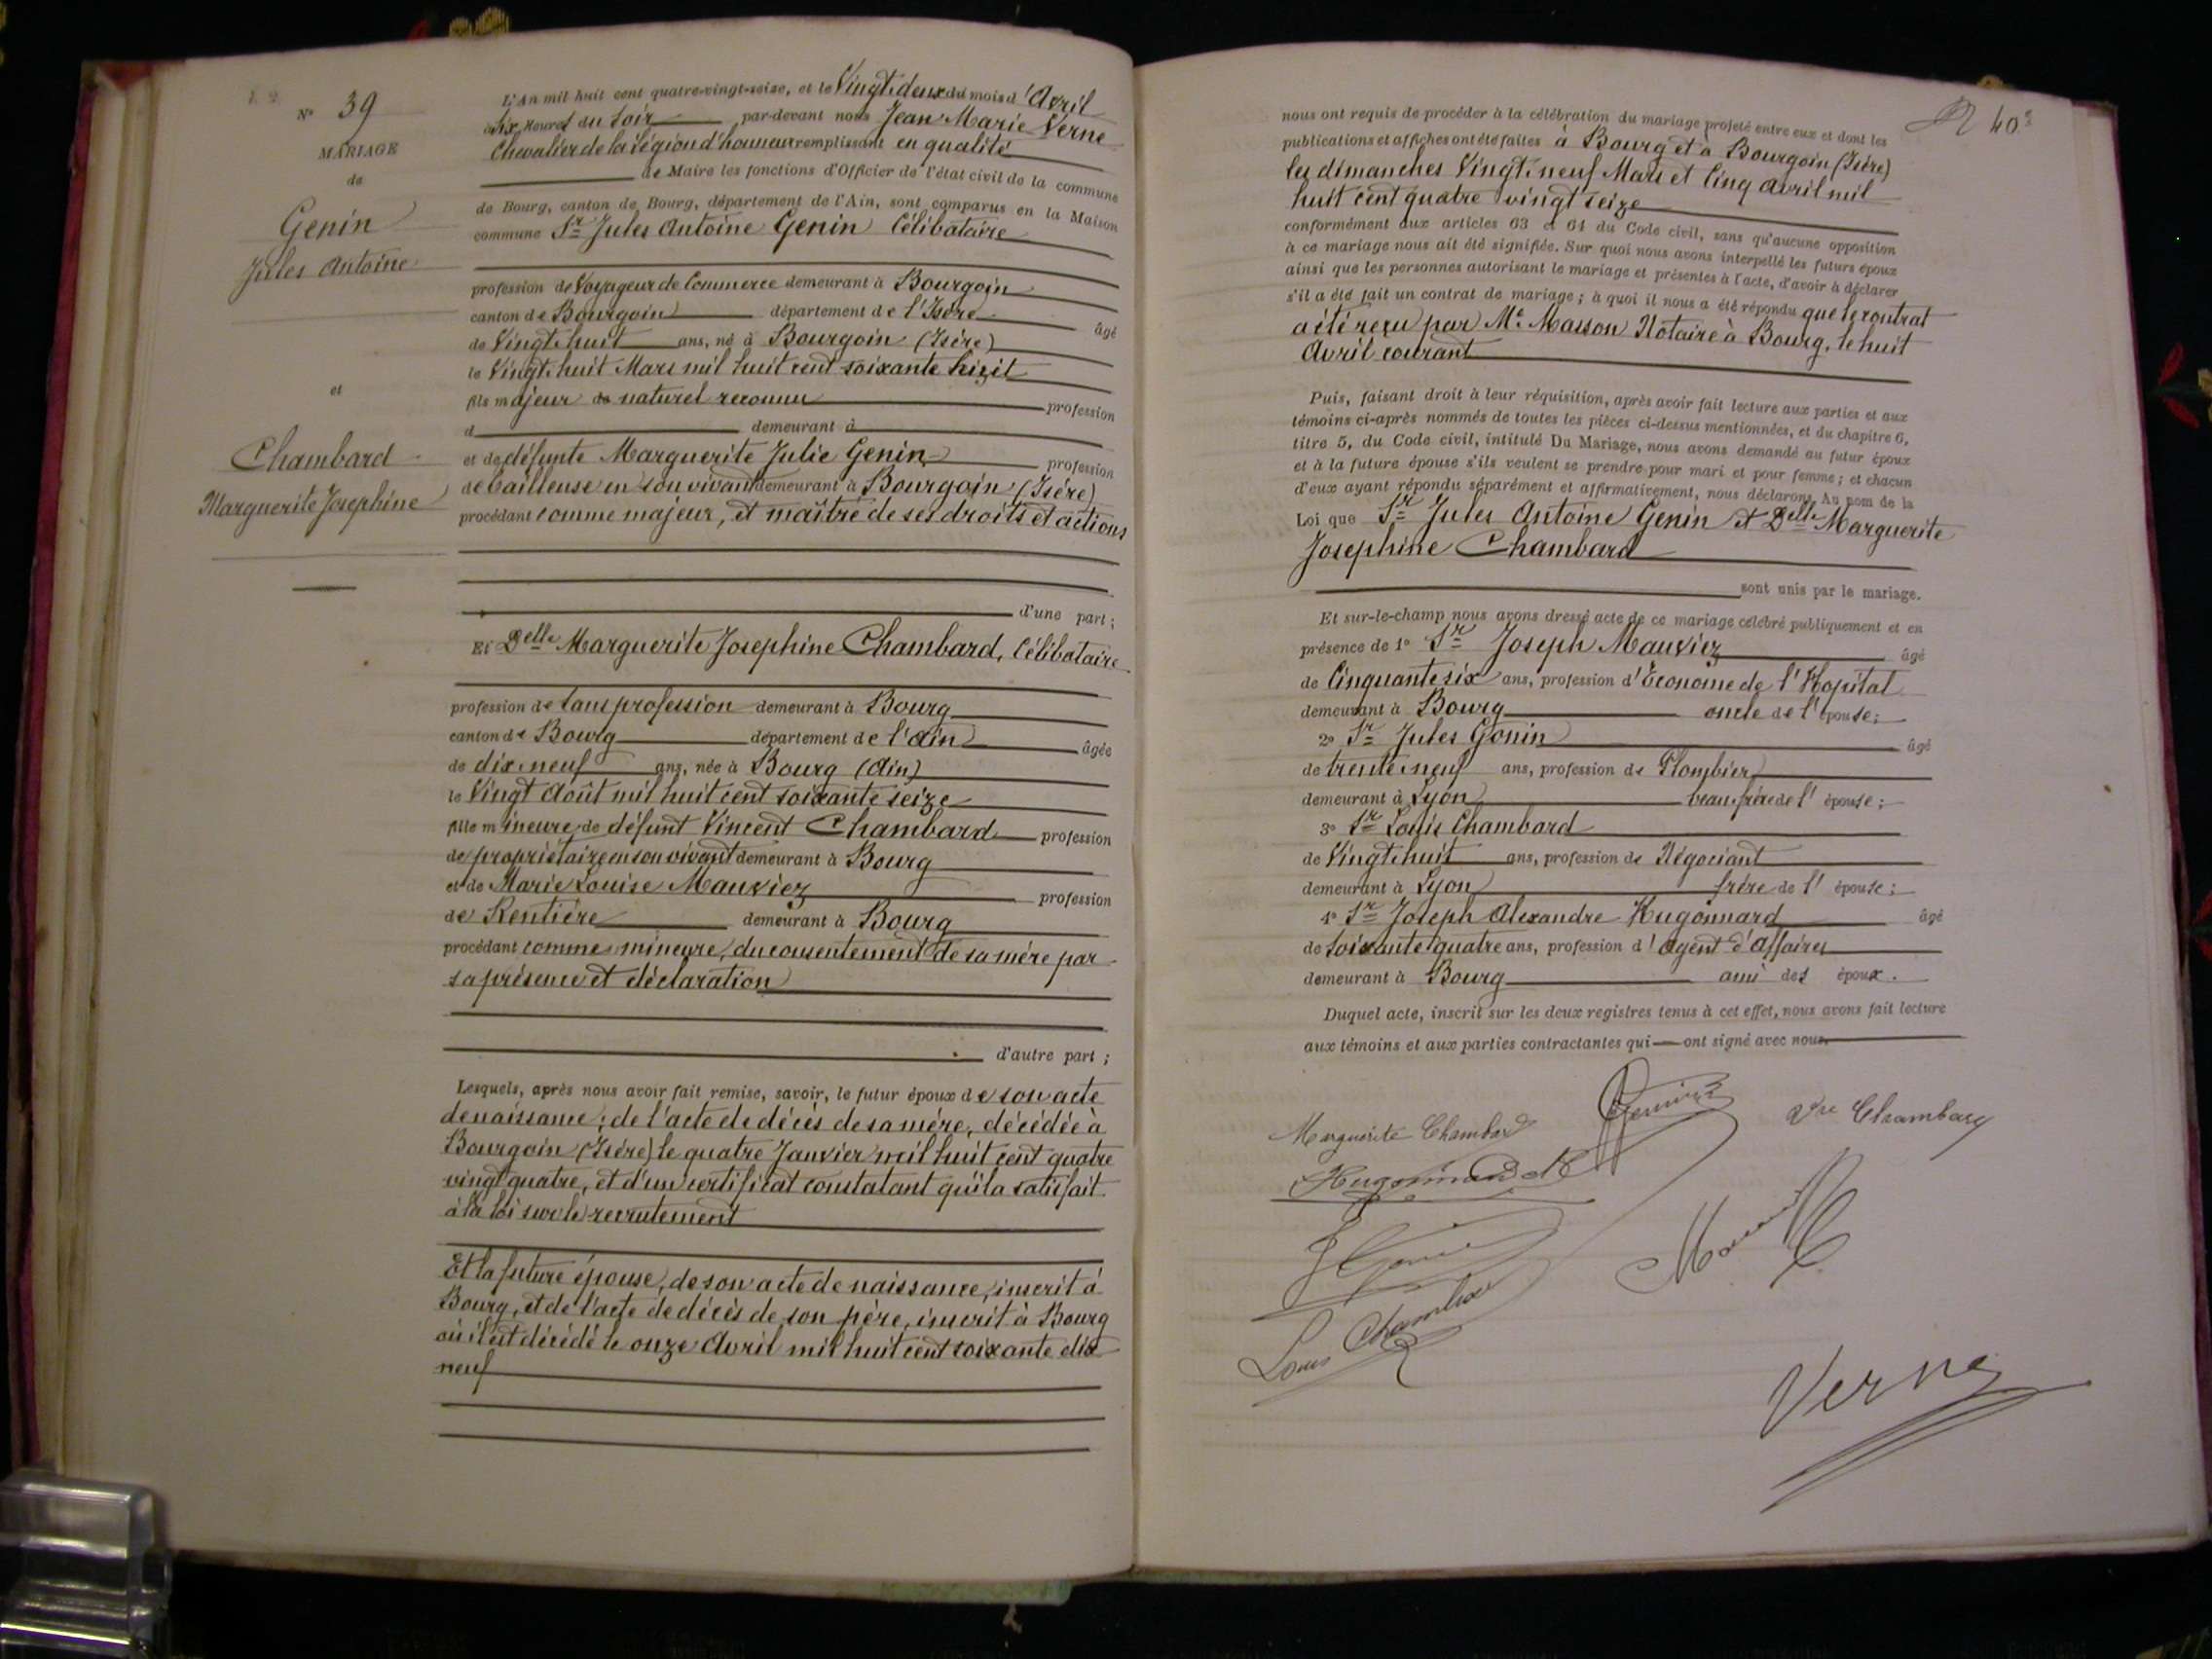 N° 39
MARIAGE
de
Genin
Jules Antoine
et
Chambard
Marguerite Josephine
L'An mil huit cent quatre-vingt-seize, et le Vingt deux du mois d'Avril
à Six Heures du soir par-devant nous Jean Marie Verne
Chevalier de la Légion d'honneur remplissant en qualité
de Maire les fonctions d'Officier de l'état civil de la commune
de Bourg, canton de Bourg, département de l'Ain, sont comparus en la Maison
commune Sr Jules Antoine Genin Célibataire
profession de Voyageur de Commerce demeurant à Bourgoin
canton de Bourgoin département de l'Isère âgé
de Vingt huit ans, né à Bourgoin (Isère)
le Vingt huit Mars mil huit cent soixante huit
fils majeur de naturel reconnu profession
d demeurant à
et de défunte Marguerite Julie Genin profession
de tailleuse en son vivant demeurant à Bourgoin (Isère)
procédant comme majeur, et maître de ses droits et actions
d'une part ;
Et Delle Marguerite Josephine Chambard, Célibataire
profession de sans profession demeurant à Bourg
canton de Bourg département de l'Ain âgée
de dix neuf ans, née à Bourg (Ain)
le Vingt Août mil huit cent soixante seize
fille mineure de défunt Vincent Chambard profession
de propriétaire en son vivant demeurant à Bourg
et de Marie Louise Mauviez profession
de Rentière demeurant à Bourg
procédant comme mineure, du consentement de sa mère par
sa présence et déclaration
d'autre part ;
Lesquels, après nous avoir fait remise, savoir, le futur époux de son acte
de naissance ; de l'acte de décès de sa mère, décédée à
Bourgoin (Isère) le quatre Janvier mil huit cent quatre
vingt quatre, et d'un certificat constatant qu'il a satisfait
à la loi sur le recrutement
Et la future épouse, de son acte de naissance, inscrit à
Bourg, et de l'acte de décès de son père, inscrit à Bourg
où il est décédé le onze Avril mil huit cent soixante dix
neuf
40
nous ont requis de procéder à la célébration du mariage projeté entre eux et dont les
publications et affiches ont été faites à Bourg et à Bourgoin (Isère)
les dimanches Vingt neuf Mars et Cinq Avril mil
huit cent quatre vingt seize
conformément aux articles 63 et 64 du Code civil, sans qu'aucune opposition
à ce mariage nous ait été signifiée. Sur quoi nous avons interpellé les futurs époux
ainsi que les personnes autorisant le mariage et présentes à l'acte, d'avoir à déclarer
s'il a été fait un contrat de mariage ; à quoi il nous a été répondu que le contrat
a été reçu par Me Masson Notaire à Bourg, le huit
Avril courant
Puis, faisant droit à leur réquisition, après avoir fait lecture aux parties et aux
témoins ci-après nommés de toutes les pièces ci-dessus mentionnées, et du chapitre 6,
titre 5, du Code civil, intitulé Du Mariage, nous avons demandé au futur époux
et à la future épouse s'ils veulent se prendre pour mari et pour femme ; et chacun
d'eux ayant répondu séparément et affirmativement, nous déclarons, Au nom de la
Loi que Sr Jules Antoine Genin et Delle Marguerite
Josephine Chambard
sont unis par le mariage.
Et sur-le-champ nous avons dressé acte de ce mariage célébré publiquement et en
présence de 1° Sr Joseph Mauviez âgé
de Cinquante six ans, profession d'Econome de l'Hopital
demeurant à Bourg oncle de l'épouse ;
2° Sr Jules Gonin âgé
de trente neuf ans, profession de Plombier
demeurant à Lyon beau frère de l'épouse ;
3° Sr Louis Chambard
de Vingt huit ans, profession de Négociant
demeurant à Lyon frère de l'épouse ;
4° Sr Joseph Alexandre Hugonnard âgé
de soixante quatre ans, profession d'Agent d'Affaires
demeurant à Bourg ami des époux.
Duquel acte, inscrit sur les deux registres tenus à cet effet, nous avons fait lecture
aux témoins et aux parties contractantes qui ont signé avec nous.
Marguerite Chambard Genin Vve Chambard
Hugonnard
Louis Chambard
Verne